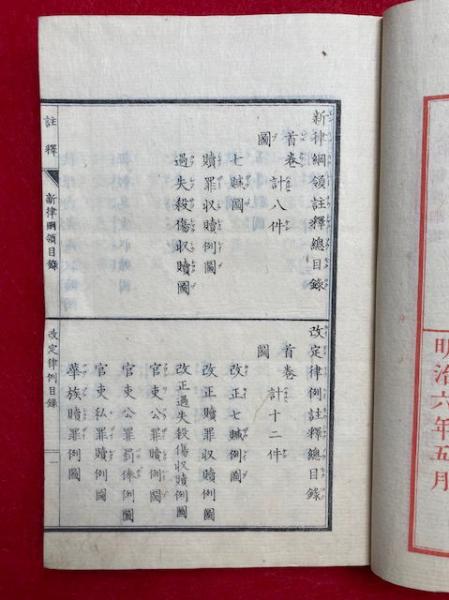 明治六年五月
新律綱領註釋總目錄
首卷 計八件
圖
七贓圖
贖罪収贖例圖
過失殺傷収贖圖
改定律例註釋總目錄
首卷 計十二件
圖
改正七贓例圖
改正贖罪収贖例圖
改正過失殺傷収贖例圖
官吏公罪贖例圖
官吏公罪罰俸例圖
官吏私罪贖例圖
華族贖罪例圖
註釋 新律綱領目錄 改定律例目錄 一